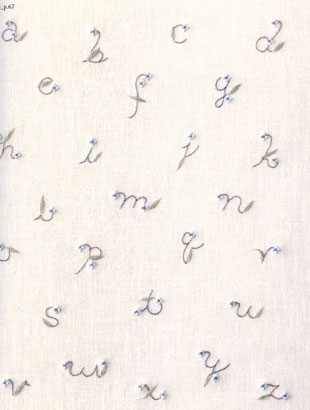 p.67
a b c d
e f g
h i j k
l m n
o p q r
s t u
v w x y z